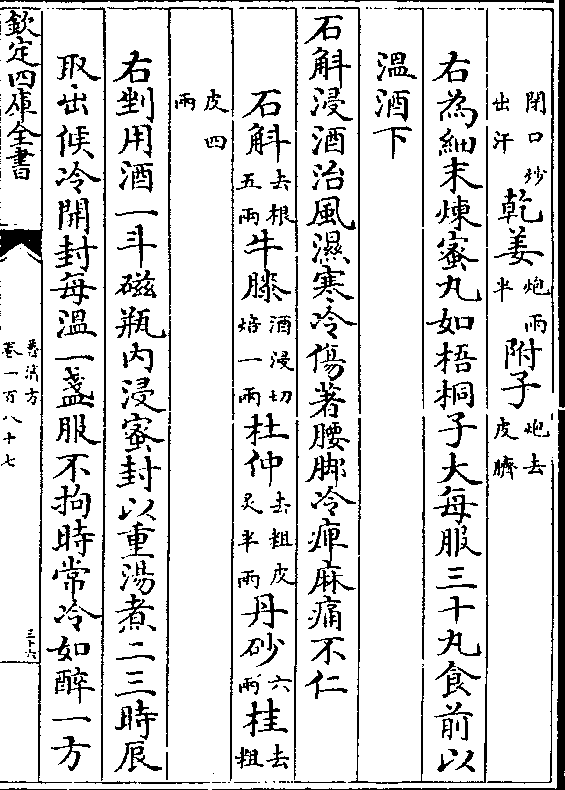 閉口炒出汗乾姜炮兩半附子炮去皮臍
右為細末煉蜜丸如梧桐子大每服三十丸食前以
溫酒下
石斛浸酒治風濕寒冷傷著腰脚冷痺麻痛不仁
石斛去根五兩牛膝酒浸切焙一兩杜仲去粗皮炙半兩丹砂六兩桂去粗
皮四兩
右剉用酒一斗磁瓶內浸蜜封以重湯煮二三時辰
取出候冷開封每溫一盞服不拘時常冷如醉一方
欽定四庫全書
普濟方
卷一百八十七
三十六